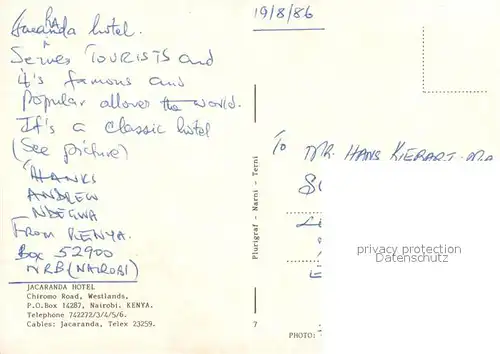 Jacaranda hotel.
Serves TOURISTS and
it's famous and
popular allover the world.
It's a classic hotel
(See picture)
THANKS
ANDREW
NDEGWA
From KENYA.
Box 52900
NRB (NAIROBI)
JACARANDA HOTEL
Chiromo Road, Westlands,
P.O.Box 14287, Nairobi. KENYA.
Telephone 742272/3/4/5/6.
Cables: Jacaranda, Telex 23259.
Plurigraf - Narni - Terni
7
19/8/86
To MR. HANS
privacy protection
Datenschutz
PHOTO: